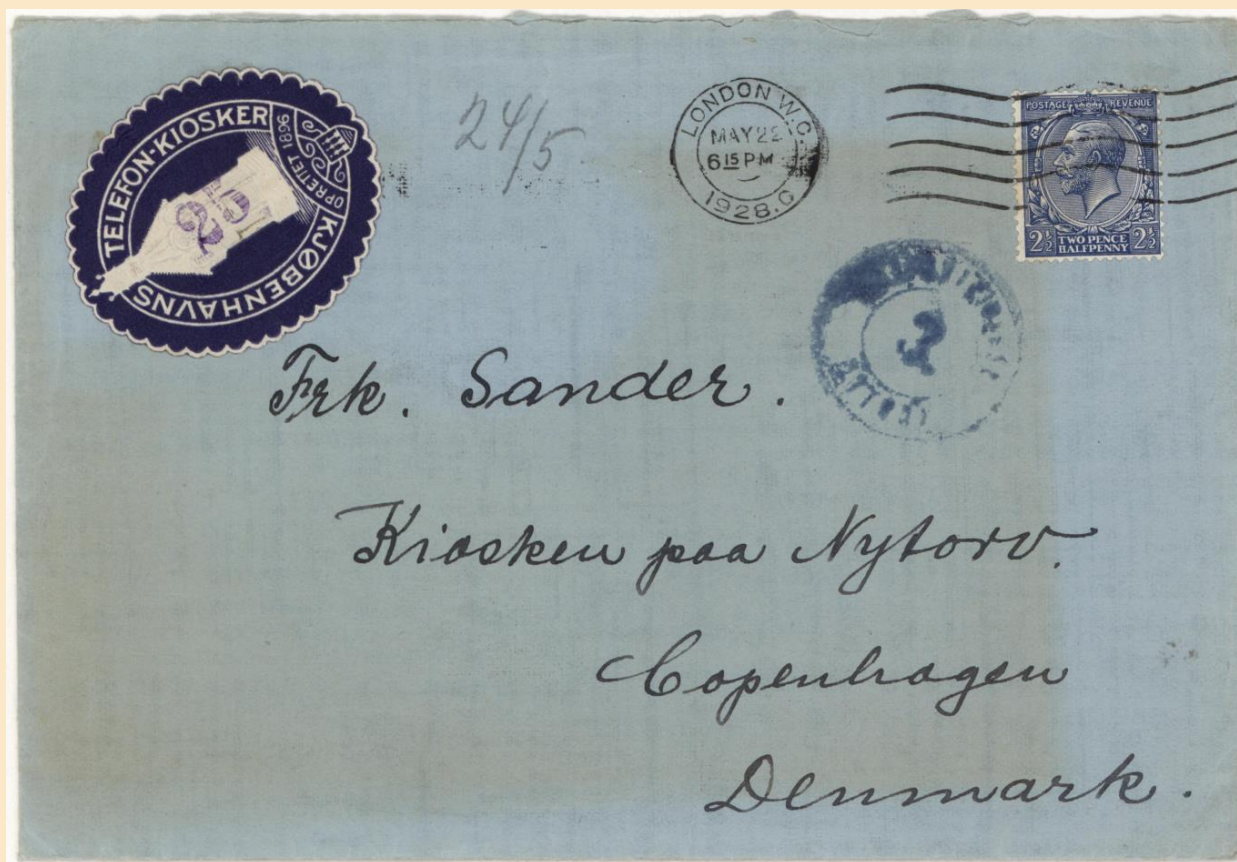 KJØBENHAVNS TELEFON-KIOSKER
OPRETTET 1896
25
24/5
LONDON W.C.
MAY 22
6 15 PM
1928.C
POSTAGE REVENUE
2½ TWO PENCE HALFPENNY 2½
3
Frk. Sander.
Kiosken paa Nytorv.
Copenhagen
Denmark.